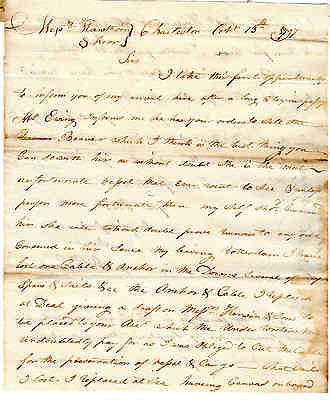 Messrs Charleston Octr 15th
Sirs
I take this first opportunity
to inform you of my arrival here after a long & tegious passage
Mr Ewing Informs me he has your orders to sell the
Beaver which I think is the best thing you
Can do with him as without doubt She is the most
unfortunate vessel that ever went to Sea & unless
person more fortunate than my Self
him she will without doubt prove ruinous to any one
Concerned in her Since My leaving Rotterdam I have
lost one Cable & Anchor in the Downs Several of my
Spars & Sails &c the Anchor & Cable I replaced
at Deal giving a draft on Messrs & Sons to
be placed to your Act which the Under writers
undoubtedly pay for as I was Obliged to Cut the Cable
for the preservation of vessel & Cargo — what Sails
I lost I replaced at Sea having Canvas on board